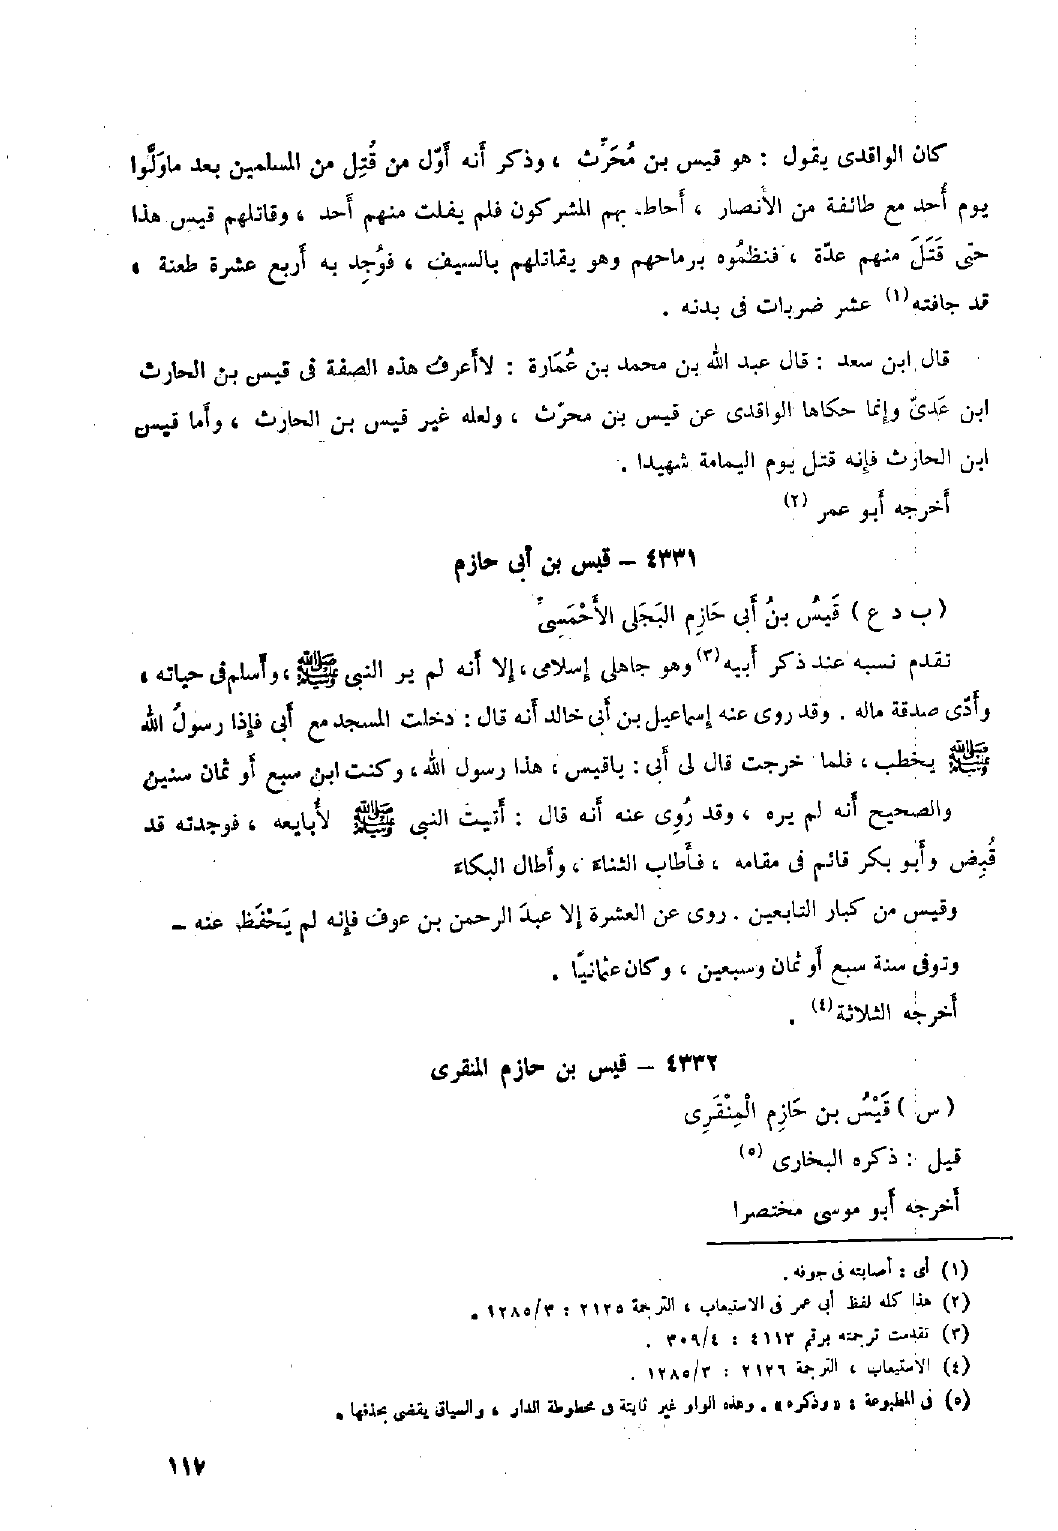 كان الواقدى يقول : هو قيس بن مُحَرِّث ، وذكر أنه أوّل من قُتِل من المسلمين بعد ماوَلَّوا
يوم أُحد مع طائفة من الأنصار ، أحاط بهم المشركون فلم يفلت منهم أحد ، وقاتلهم قيس هذا
حتى قَتَلَ منهم عدّة ، فنظمُوه برماحهم وهو يقاتلهم بالسيف ، فوُجِد به أربع عشرة طعنة ،
قد جافته (١) عشر ضربات فى بدنه .
قال ابن سعد : قال عبد الله بن محمد بن عُمَارة : لاأعرف هذه الصفة فى قيس بن الحارث
ابن عَدىّ وإنما حكاها الواقدى عن قيس بن محرّث ، ولعله غير قيس بن الحارث ، وأما قيس
ابن الحارث فإنه قتل يوم اليمامة شهيدا .
أخرجه أبو عمر (٢)
٤٣٣١ – قيس بن أبى حازم
( ب د ع ) قَيسُ بنُ أَبى حَازِم البَجَلى الأَحْمَسِىّ
تقدم نسبه عند ذكر أبيه (٣) وهو جاهلى إسلامى ، إلا أنه لم ير النبى ﷺ ، وأسلم فى حياته ،
وأدّى صدقة ماله . وقد روى عنه إسماعيل بن أبى خالد أنه قال : دخلت المسجد مع أبى فإذا رسولُ الله
ﷺ يخطب ، فلما خرجت قال لى أبى : ياقيس ، هذا رسول الله ، وكنت ابن سبع أو ثمان سنين
والصحيح أنه لم يره ، وقد رُوِى عنه أنه قال : أتيت النبى ﷺ لأُبايعه ، فوجدته قد
قُبِض وأبو بكر قائم فى مقامه ، فأطاب الثناء ، وأطال البكاء
وقيس من كبار التابعين . روى عن العشرة إلا عبدَ الرحمن بن عوف فإنه لم يَحْفَظ عنه –
وتوفى سنة سبع أو ثمان وسبعين ، وكان عثمانيًا .
أخرجه الثلاثة (٤) .
٤٣٣٢ – قيس بن حازم المنقرى
( س ) قَيْسُ بن حَازِم الْمِنْقَرِى
قيل : ذكره البخارى (٥)
أخرجه أبو موسى مختصرا
(١) أى : أصابته فى جوفه .
(٢) هذا كله لفظ أبى عمر فى الاستيعاب ، الترجمة ٢١٢٥ : ١٢٨٥/٣ .
(٣) تقدمت ترجمته برقم ٤١١٣ : ٣٠٩/٤ .
(٤) الاستيعاب ، الترجمة ٢١٢٦ : ١٢٨٥/٣ .
(٥) فى المطبوعة : « وذكره » . وهذه الواو غير ثابتة فى مخطوطة الدار ، والسياق يقضى بحذفها .
١١٧